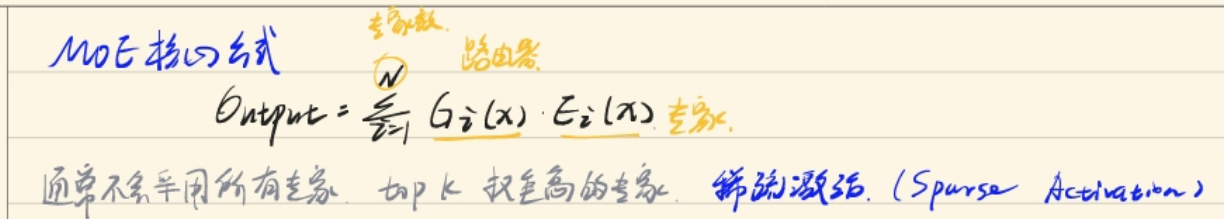 专家数.
MoE核心公式 路由器
Output = \sum_{i=1}^{N} G_i(x) · E_i(x) 专家.
通常不会采用所有专家. top K 权重高的专家. 稀疏激活. (Sparse Activation)